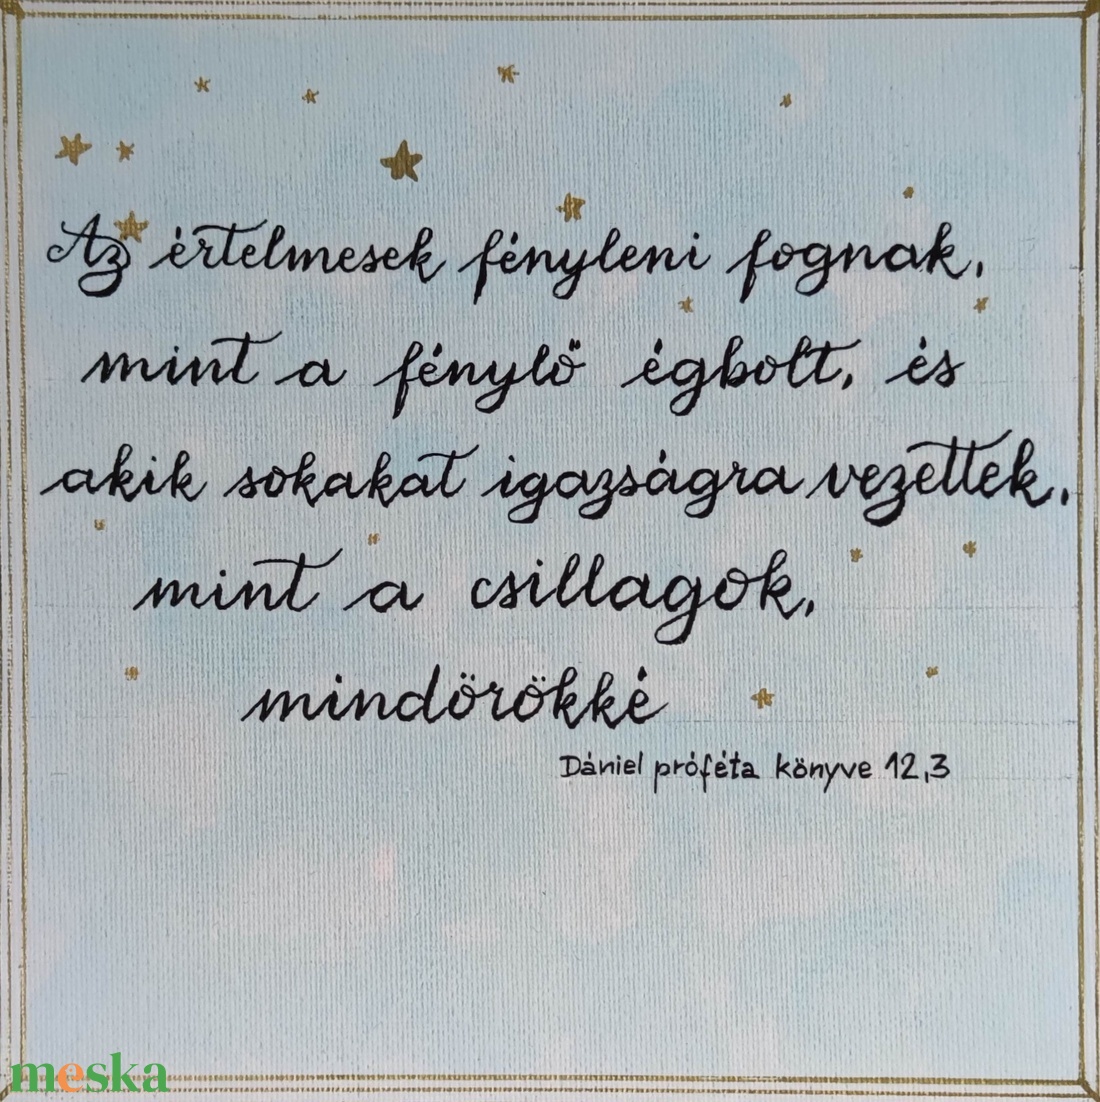 Az értelmesek fényleni fognak,
mint a fénylő égbolt, és
akik sokakat igazságra vezettek,
mint a csillagok,
mindörökké
Dániel próféta könyve 12,3
meska